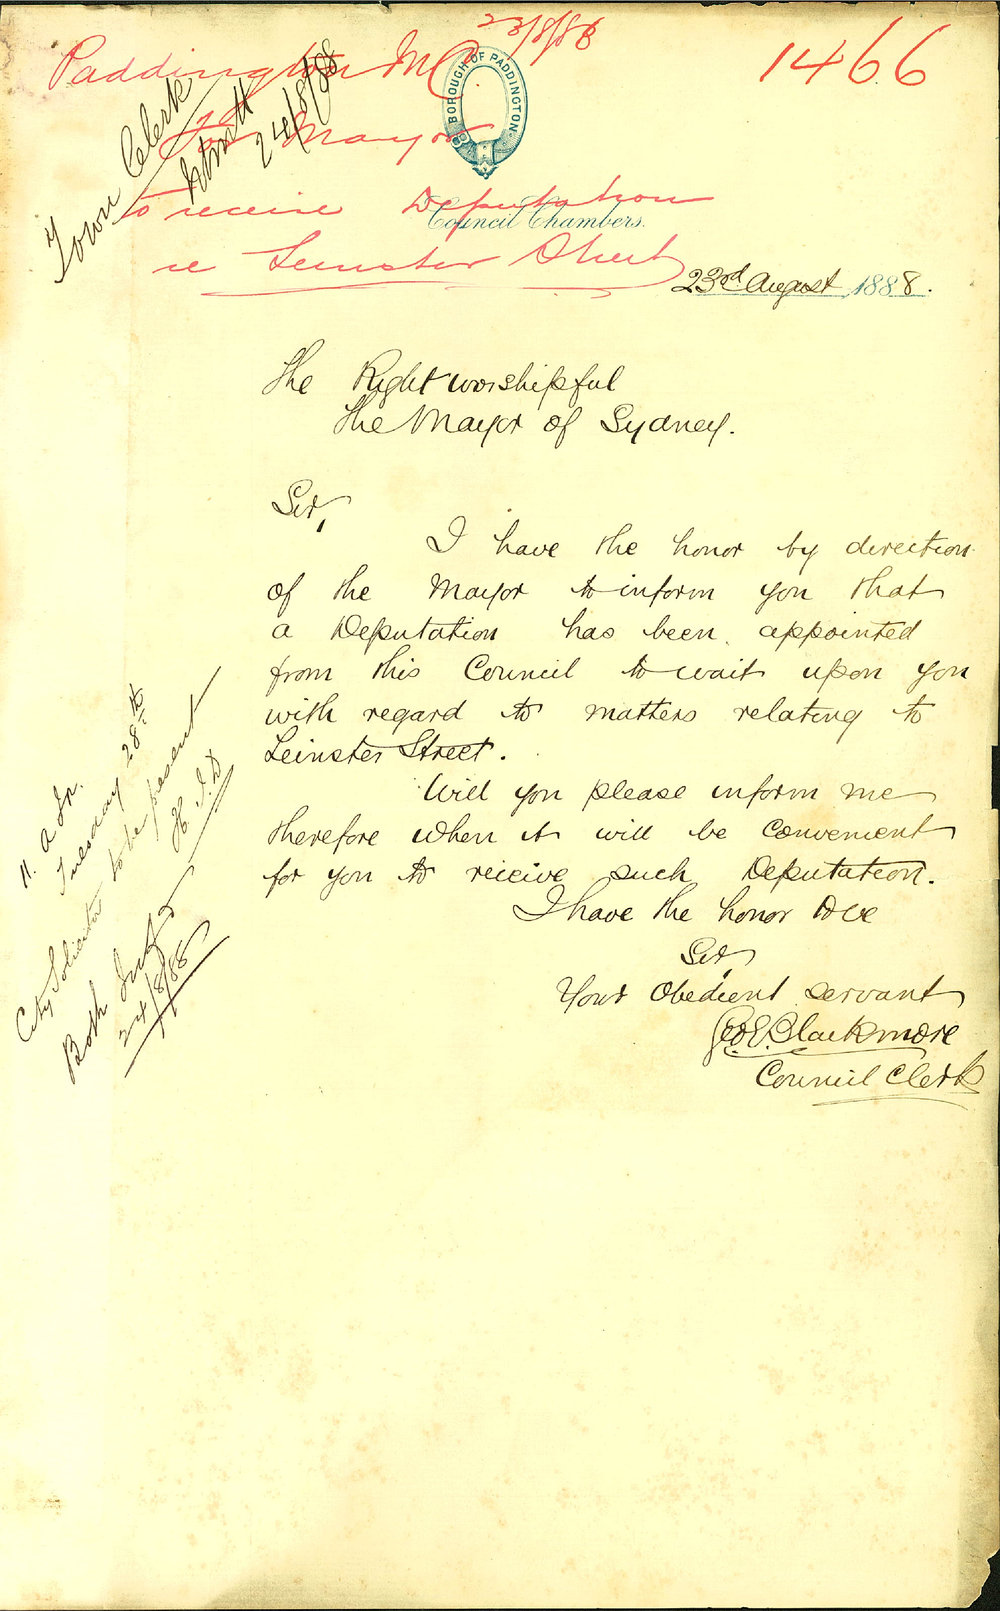 23/8/88
Paddington M.C.
1466
BOROUGH OF PADDINGTON
Mayor
to receive Deputation
re Leinster Street
Town Clerk
24/8/88
Council Chambers.
23rd August 1888.
The Right worshipful
the Mayor of Sydney.
Sir,
I have the honor by direction
of the Mayor to inform you that
a Deputation has been appointed
from this Council to wait upon you
with regard to matters relating to
Leinster Street.
Will you please inform me
therefore when it will be convenient
for you to receive such Deputation.
I have the honor to be
Sir,
Your Obedient servant
Geo E. Blackmore
Council Clerk
Tuesday 28th
City Solicitor to be present
Both
24/8/88